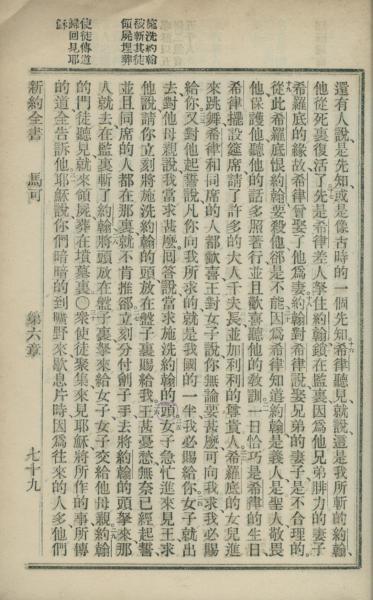 施洗約翰
被斬其徒
領屍埋葬
使徒傳道
歸回見耶
穌
還有人說是先知或是像古時的一個先知希律聽見就說這是我所斬的約翰
他從死裏復活了先是希律差人拏住約翰鎖在監裏因爲他兄弟腓力的妻子
希羅底的緣故希律曾娶了他爲妻約翰對希律說娶兄弟的妻子是不合理的
從此希羅底恨約翰要殺他卻是不能因爲希律知道約翰是義人是聖人敬畏
他保護他聽他的話多照著行並且歡喜聽他的教訓一日恰巧是希律的生日
希律擺設筵席請了許多的大人千夫長並加利利的尊貴人希羅底的女兒進
來跳舞希律和同席的人都歡喜王對女子說你無論要甚麽可向我求我必賜
給你又對他起誓說凡你向我所求的就是我國的一半我必賜給你女子就出
去對他母親說我當求甚麽回答說當求施洗約翰的頭女子急忙進來見王求
他說請你立刻將施洗約翰的頭放在盤子裏賜給我王甚憂愁無奈已經起誓
並且同席的人都在那裏就不肯推卻立刻分付劊子手去將約翰的頭拏來那
人就去在監裏斬了約翰將頭放在盤子裏拏來給女子女子交給他母親約翰
的門徒聽見就來領屍葬在墳墓裏〇衆使徒聚集來見耶穌將所作的事所傳
的道全告訴他耶穌說你們暗暗的到曠野來歇息片時因爲往來的人多他們
新約全書 馬可 第六章 七十九